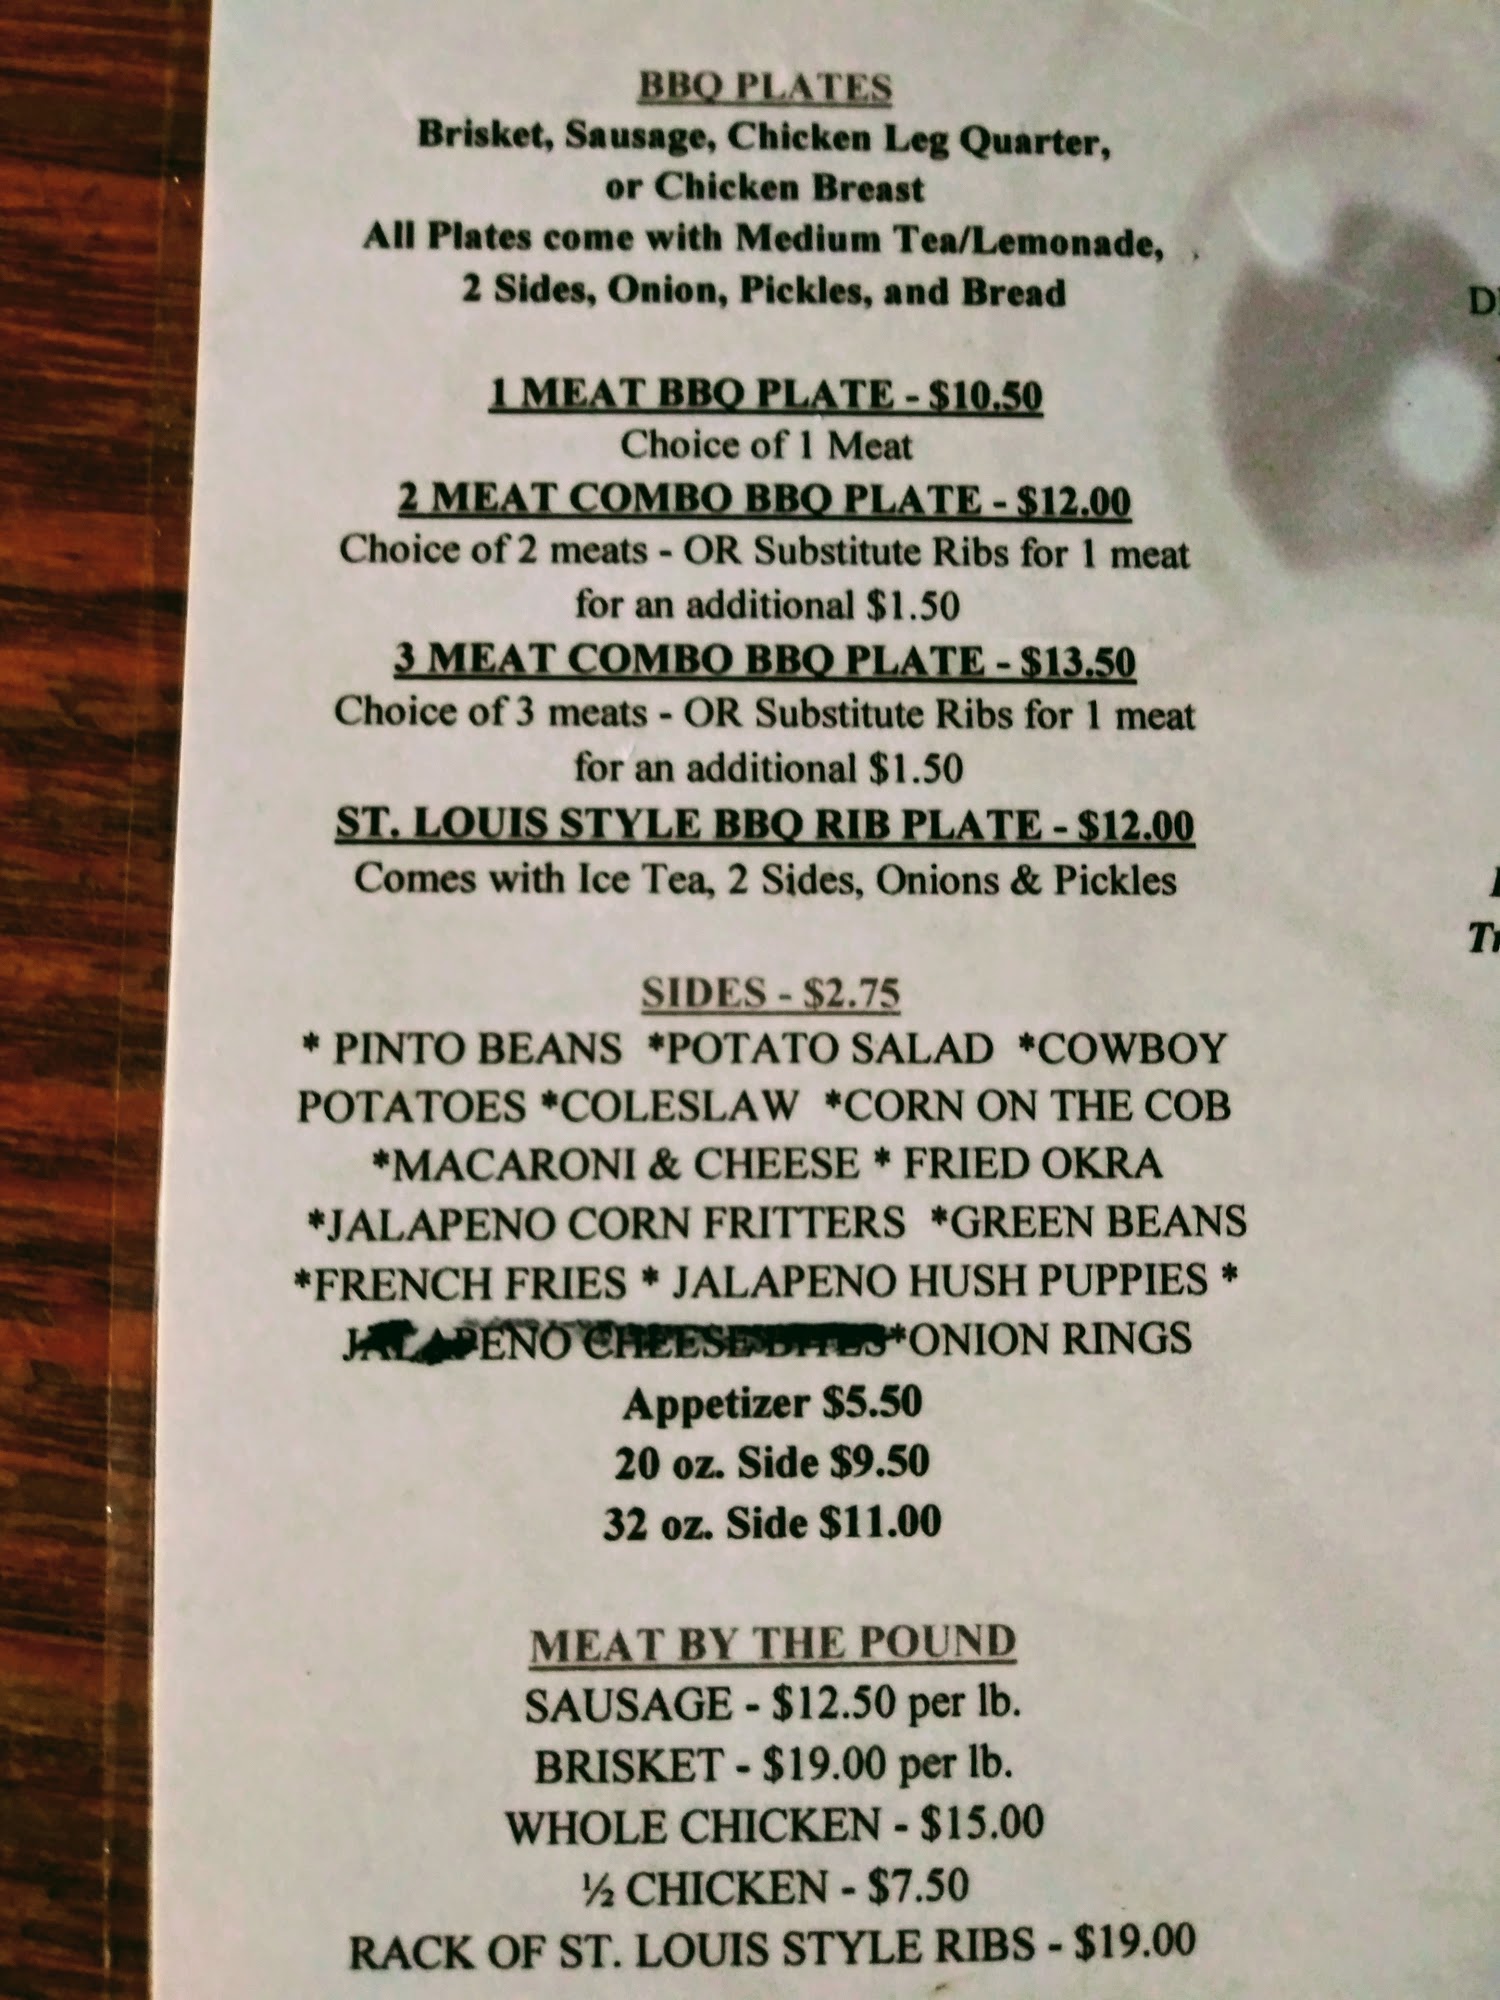 BBQ PLATES
Brisket, Sausage, Chicken Leg Quarter,
or Chicken Breast
All Plates come with Medium Tea/Lemonade,
2 Sides, Onion, Pickles, and Bread
1 MEAT BBQ PLATE - $10.50
Choice of 1 Meat
2 MEAT COMBO BBQ PLATE - $12.00
Choice of 2 meats - OR Substitute Ribs for 1 meat
for an additional $1.50
3 MEAT COMBO BBQ PLATE - $13.50
Choice of 3 meats - OR Substitute Ribs for 1 meat
for an additional $1.50
ST. LOUIS STYLE BBQ RIB PLATE - $12.00
Comes with Ice Tea, 2 Sides, Onions & Pickles
SIDES - $2.75
* PINTO BEANS *POTATO SALAD *COWBOY
POTATOES *COLESLAW *CORN ON THE COB
*MACARONI & CHEESE * FRIED OKRA
*JALAPENO CORN FRITTERS *GREEN BEANS
*FRENCH FRIES * JALAPENO HUSH PUPPIES *
JALAPENO CHEESE BITES*ONION RINGS
Appetizer $5.50
20 oz. Side $9.50
32 oz. Side $11.00
MEAT BY THE POUND
SAUSAGE - $12.50 per lb.
BRISKET - $19.00 per lb.
WHOLE CHICKEN - $15.00
½ CHICKEN - $7.50
RACK OF ST. LOUIS STYLE RIBS - $19.00